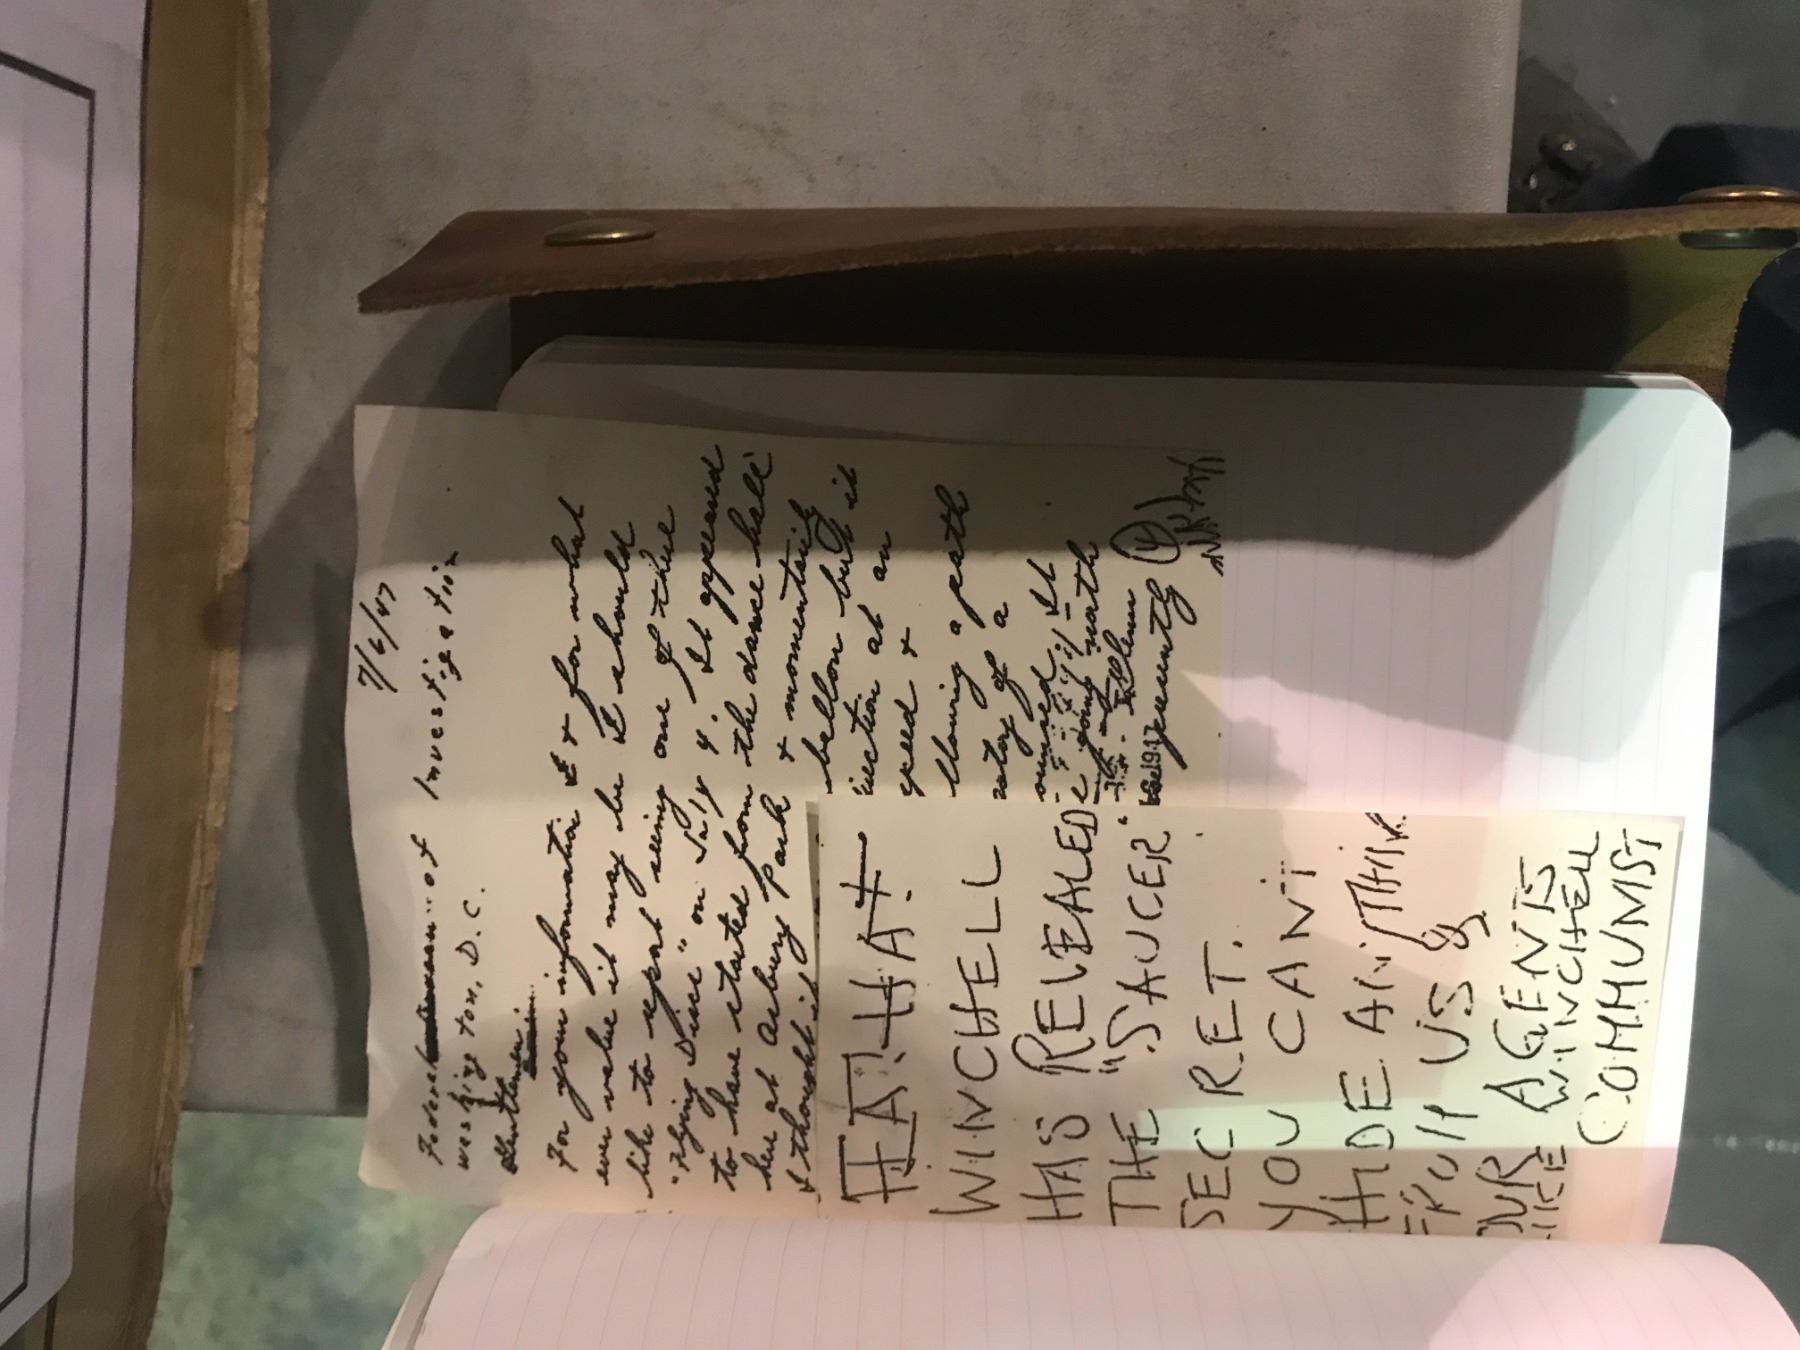 7/6/47
Federal of Investigation
Washington, D.C.
Gentlemen:
For your information & for what
ever value it may be I should
like to report seeing one of these
"Flying Discs" on July 4. It appeared
to have started from the dance hall
here at Asbury Park & momentarily
I thought it balloon but it
at an
speed &
a path
of a
It
going north
HA! HA! HA!
WINCHELL
HAS REVEALED
THE "SAUCER"
SECRET.
YOU CANT
HIDE ANYTHING
FROM US
OUR AGENTS
LIKE WINCHELL
COMMUNIST